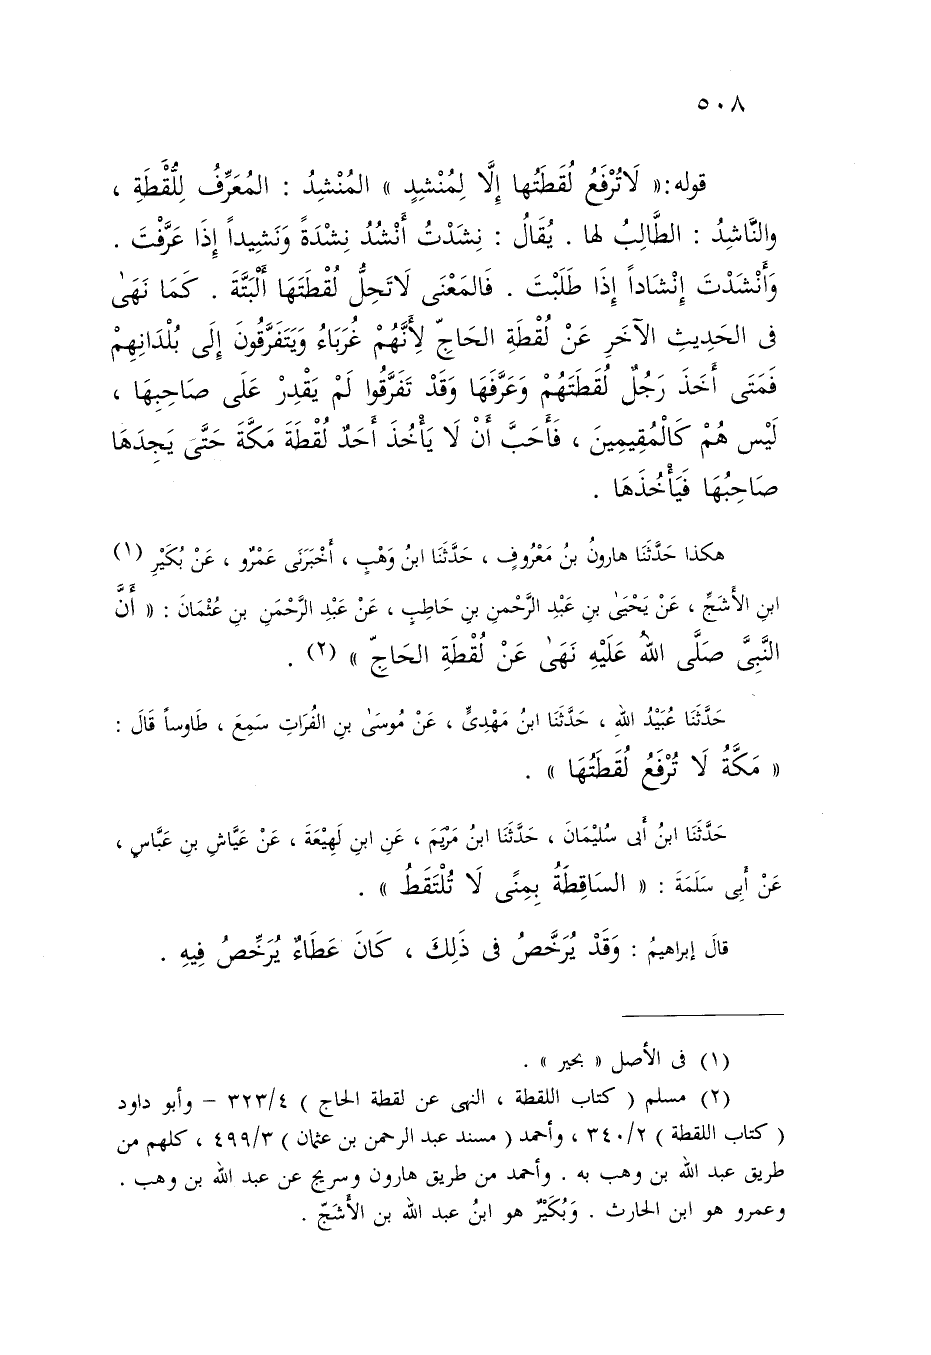 ٥٠٨
قوله: « لَاتُرْفَعُ لُقَطَتُها إِلَّا لِمُنْشِدٍ » المُنْشِدُ : المُعَرِّفُ لِلُّقَطَةِ ،
والنَّاشِدُ : الطَّالِبُ لها . يُقَالُ : نِشَدْتُ أَنْشُدُ نِشْدَةً وَنَشِيداً إِذَا عَرَّفْتَ .
وَأَنْشَدْتَ إِنْشَاداً إِذَا طَلَبْتَ . فَالمَعْنَى لَاتَحِلُّ لُقْطَتَهَا أَلْبَتَّةَ . كَمَا نَهَىٰ
فى الحَدِيثِ الآخَرِ عَنْ لُقْطَةِ الحَاجِّ لِأَنَّهُمْ غُرَبَاءُ وَيَتَفَرَّقُونَ إِلَى بُلْدَانِهِمْ
فَمَتَى أَخَذَ رَجُلٌ لُقَطَتَهُمْ وَعَرَّفَهَا وَقَدْ تَفَرَّقُوا لَمْ يَقْدِرْ عَلَى صَاحِبِهَا ،
لَيْس هُمْ كَالْمُقِيمِينَ ، فَأَحَبَّ أَنْ لَا يَأْخُذَ أَحَدٌ لُقْطَةَ مَكَّةَ حَتَّى يَجِدَهَا
صَاحِبُهَا فَيَأْخُذَهَا .
هكذا حَدَّثَنَا هارونُ بنُ مَعْرُوفٍ ، حَدَّثَنَا ابنُ وَهْبٍ ، أَخْبَرَنَى عَمْرٌو ، عَنْ بُكَيْرِ (١)
ابنِ الأَشَجِّ ، عَنْ يَحْيَىٰ بنِ عَبْدِ الرَّحْمنِ بنِ حَاطِبٍ ، عَنْ عَبْدِ الرَّحْمَنِ بنِ عُثْمَانَ : « أَنَّ
النَّبِىَّ صَلَّى اللهُ عَلَيْهِ نَهَىٰ عَنْ لُقْطَةِ الحَاجِّ » (٢) .
حَدَّثَنَا عُبَيْدُ اللهِ ، حَدَّثَنَا ابنُ مَهْدِىٍّ ، عَنْ مُوسَىٰ بنِ الفُرَاتِ سَمِعَ ، طَاوساً قَالَ :
« مَكَّةُ لَا تُرْفَعُ لُقَطَتُهَا » .
حَدَّثَنَا ابنُ أَبى سُلَيْمَانَ ، حَدَّثَنَا ابنُ مَرْيَمَ ، عَنِ ابنِ لَهِيْعَةَ ، عَنْ عَيَّاشِ بنِ عَبَّاسٍ ،
عَنْ أَبِى سَلَمَةَ : « السَاقِطَةُ بِمِنًى لَا تُلْتَقَطُ » .
قالَ إبراهيمُ : وَقَدْ يُرَخَّصُ فى ذَلِكَ ، كَانَ عَطَاءٌ يُرَخِّصُ فِيهِ .
(١) فى الأصل « بحير » .
(٢) مسلم ( كتاب اللقطة ، النهى عن لقطة الحاج ) ٣٢٣/٤ – وأبو داود
( كتاب اللقطة ) ٣٤٠/٢ ، وأحمد ( مسند عبد الرحمن بن عثمان ) ٤٩٩/٣ ، كلهم من
طريق عبد الله بن وهب به . وأحمد من طريق هارون وسريج عن عبد الله بن وهب .
وعمرو هو ابن الحارث . وَبُكَيْرٌ هو ابنُ عبد الله بن الأَشَجّ .